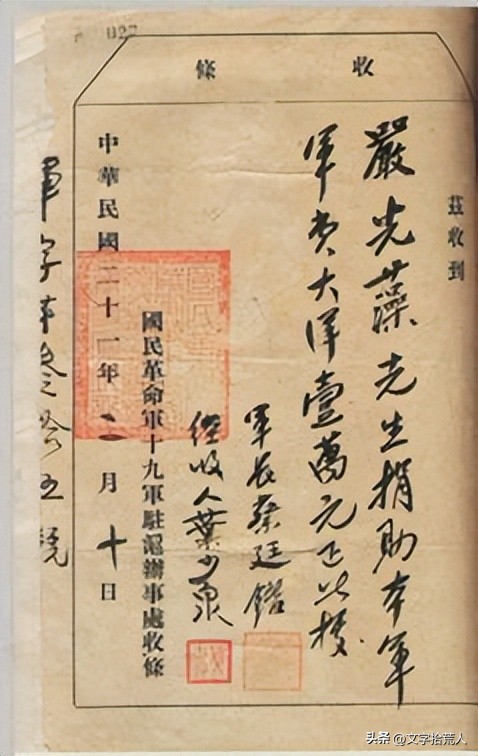 027
收條
茲收到
嚴光藻先生捐助本軍
軍費大洋壹萬元正此據
軍長蔡廷鍇
經收人葉少泉
國民革命軍十九軍駐滬辦事處收條
中華民國二十一年二月十日
軍字第叁拾五號
头条 @文字拾荒人